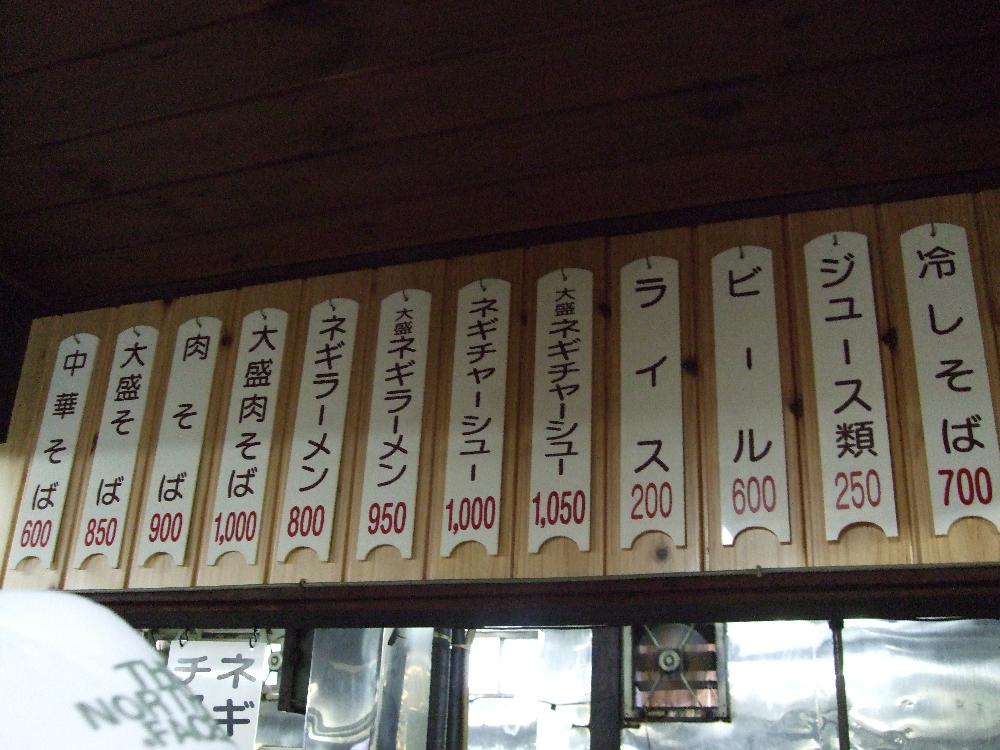 中華そば
600
大盛そば
850
肉そば
900
大盛肉そば
1,000
ネギラーメン
800
大盛ネギラーメン
950
ネギチャーシュー
1,000
大盛ネギチャーシュー
1,050
ライス
200
ビール
600
ジュース類
250
冷しそば
700
THE
NORTH
FACE
ネギ
チ